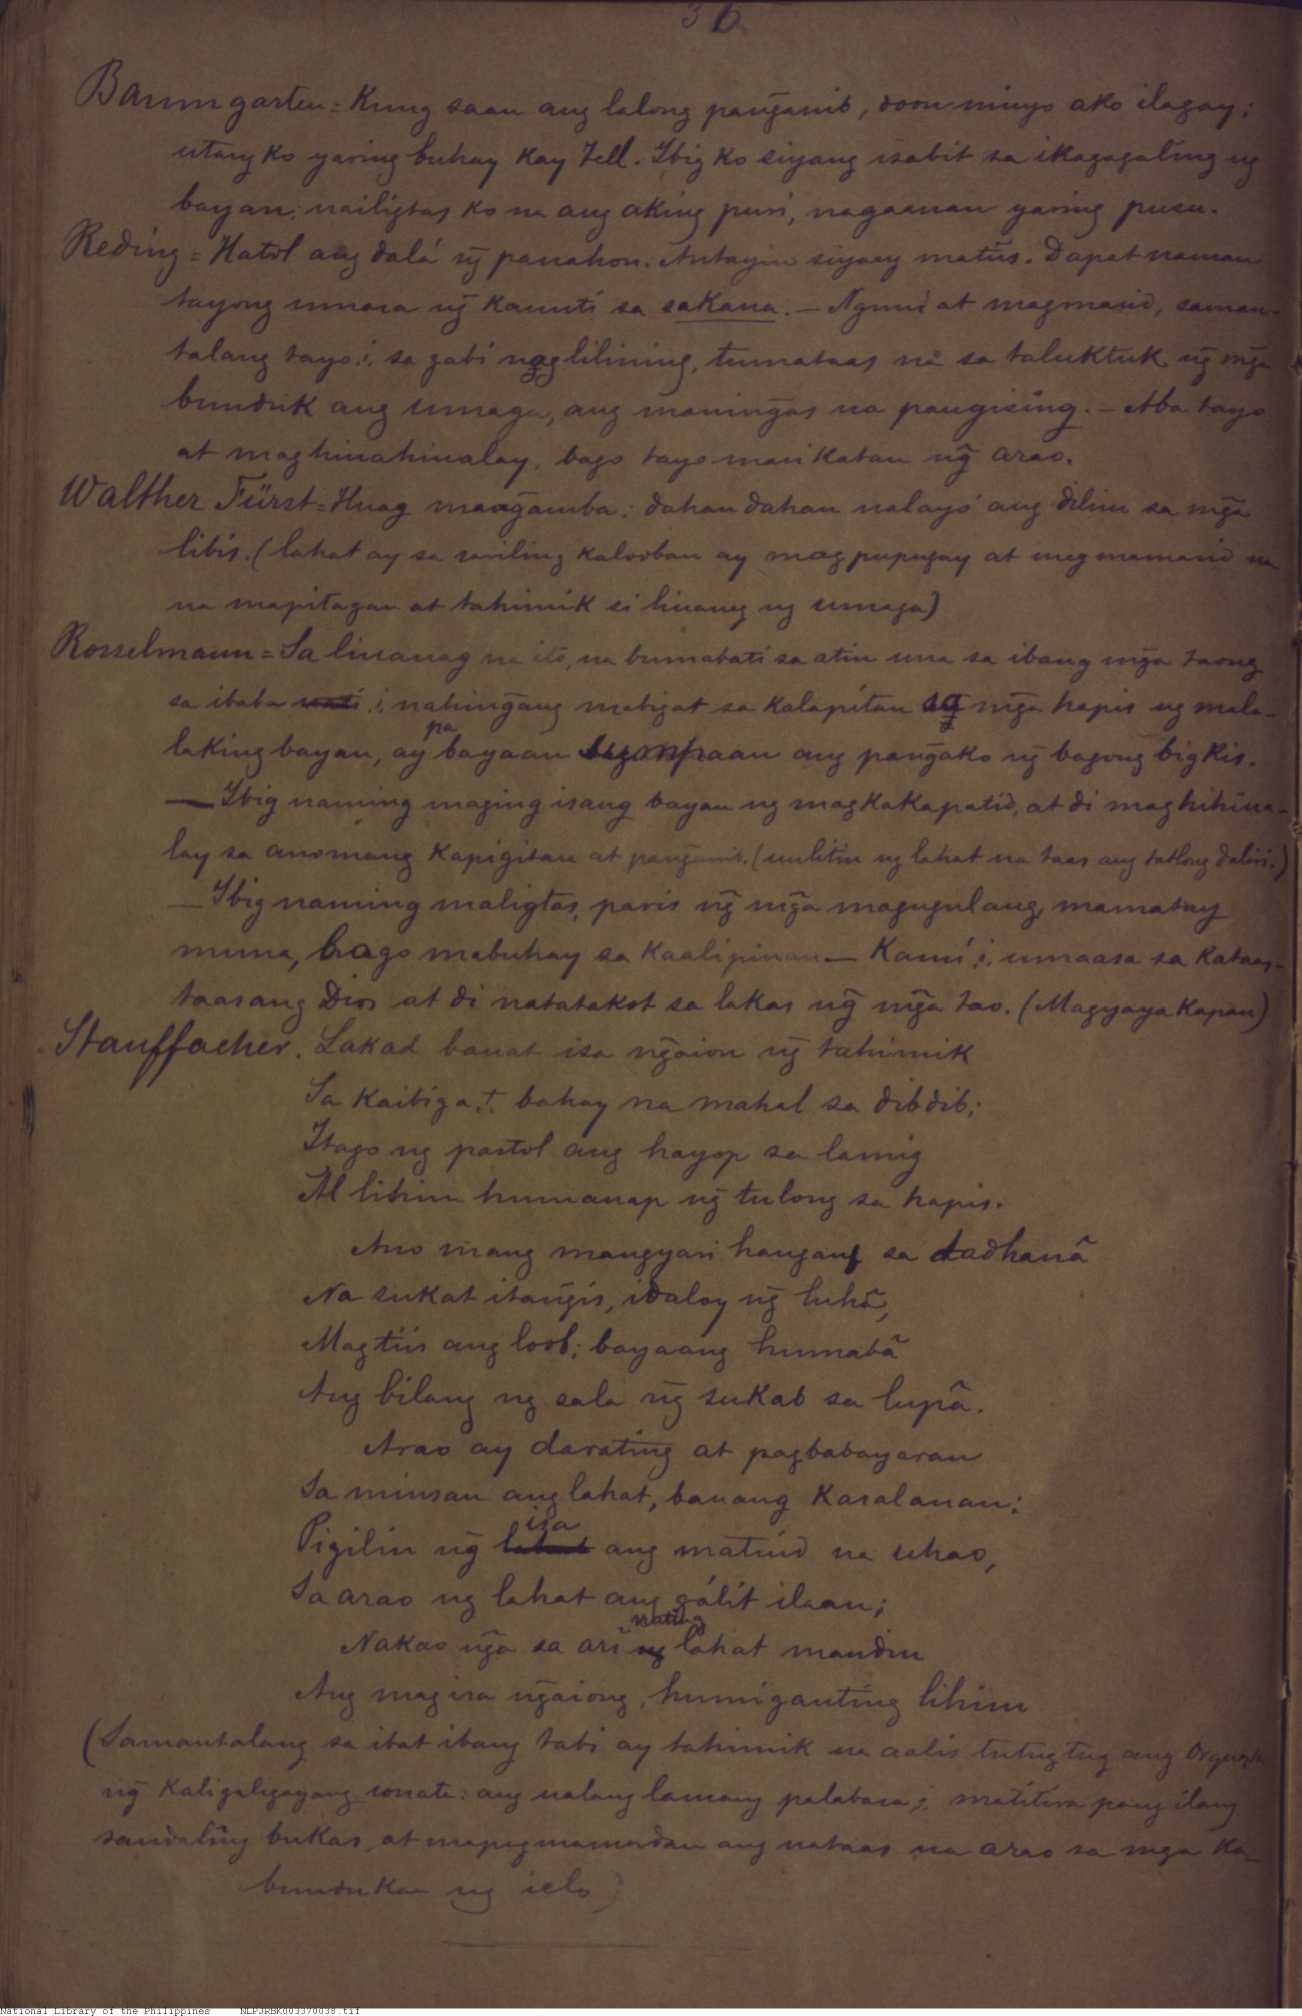 36
Baumgarten = Kung saan ang lalong pang̃anib, doon ninyo ako ilagay;
utang ko yaring buhay kay Tell. Ibig ko siyang isabit sa ikagagaling ng
bayan; nailigtas ko na ang aking puri, nagaanan yaring puso.
Reding = Hatol ang dalá ng̃ panahon. Antayin siyang matiis. Dapat naman
tayong umasa ng̃ kaunti sa sakana. — Nguni at magmasid, saman-
talang tayo.i. sa gabi nagliliining, tumataas na sa taluktuk ng̃ mg̃a
bunduk ang umaga, ang maning̃as na pangising. — Aba tayo
at maghinahinalay, bago tayo masikatan ng̃ arao.
Walther Fürst = Huag mang̃amba; dahan dahan nalayó ang dilim sa mg̃a
libis. (lahat ay sa sariling kalooban ay magpupugay at magmamasid na
na mapitagan at tahimik si linang ng umaga)
Rosselmann = Sa linanag na ito, na bumabati sa atin una sa ibang mg̃a taong
sa ibaba .i. nahing̃ang mabigat sa kalapitan sa mg̃a hapis ng mala-
laking bayan, ay pa bayaan ang pang̃ako ng̃ bagong bigkis.
— Ibig naming maging isang bayan ng magkakapatid, at di maghihina-
lay sa anomang kapigitan at pang̃anib. (uulitin ng lahat na taas ang tatlong daliri.)
— Ibig naming maligtas, paris ng̃ mg̃a magugulang, mamatay
muna, bago mabuhay sa kaalipinan — Kami .i. umaasa sa kataas-
taasang Dios at di natatakot sa lakas ng̃ mg̃a tao. (Magyayakapan)
Stauffacher. Lakad banat isa ng̃aion ng̃ tahimik
Sa kaibiga.t. bahay na mahal sa dibdib;
Itago ng pastol ang hayop sa lamig
At lihim humanap ng̃ tulong sa hapis.
Ano mang mangyari hangang sa dadhanã
Na sukat itang̃is, idaloy ng̃ luhã,
Magtiis ang loob; bayaang humabã
Ang bilang ng sala ng̃ sukab sa lupã.
Arao ay darating at pagbabayaran
Sa minsan ang lahat, banang kasalanan;
Pigilin ng̃ isa ang matuid na uhao,
Sa arao ng lahat ang gálit ilaan;
Nakao ng̃a sa ari nating lahat mandin
Ang magisa ng̃aiong, humiganting lihim
(Samantalang sa ibat ibang tabi ay tahimik na aalis tutugtug ang Orquesta
ng̃ kaligaligayang sonata: ang ualang lamang palabasa .i. matitira pang ilang
sandaling bukas at mapagmamasdan ang nataas na arao sa mga ka-
bundukan ng ielo)
National Library of the Philippines NLPJRBK003370038.tif